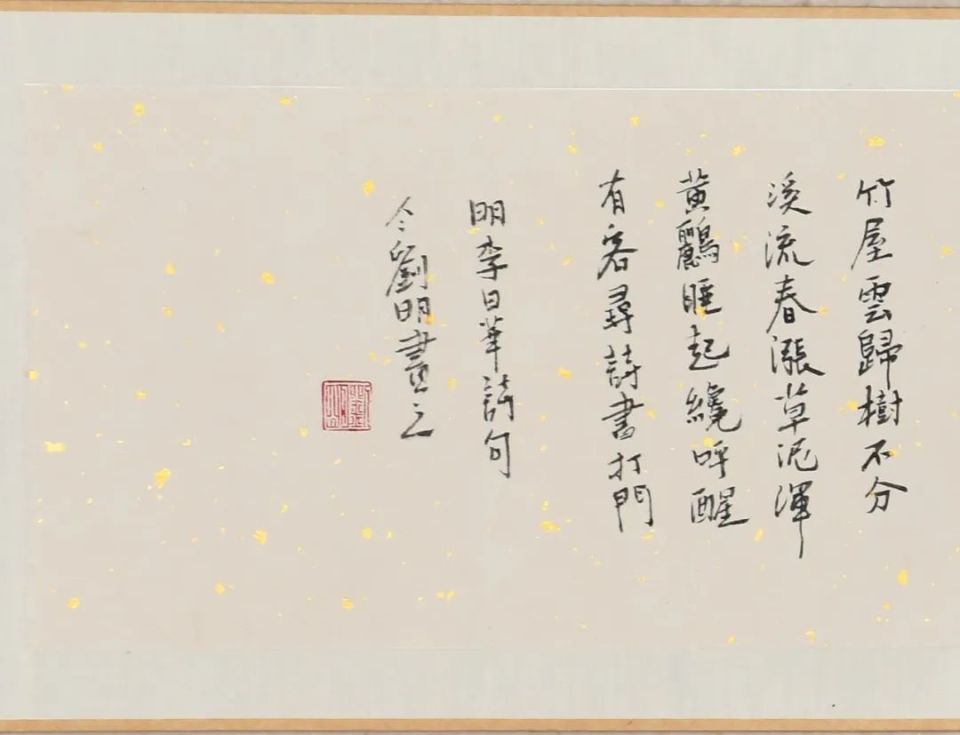 竹屋雲歸樹不分
溪流春漲草泥渾
黃鸝睡起纔呼醒
有客尋詩書打門
明李日華詩句
今劉明畫之